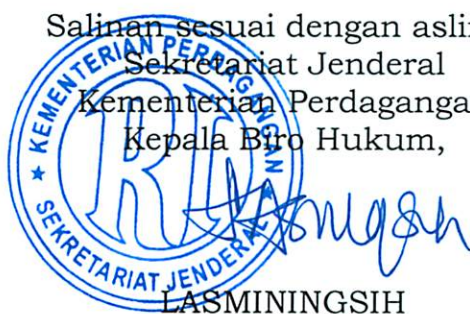 Salinan sesuai dengan aslin
Sekretariat Jenderal
Kementerian Perdaganga
Kepala Biro Hukum,
KEMENTERIAN PERDAGANGAN
RI
SEKRETARIAT JENDERAL
LASMININGSIH